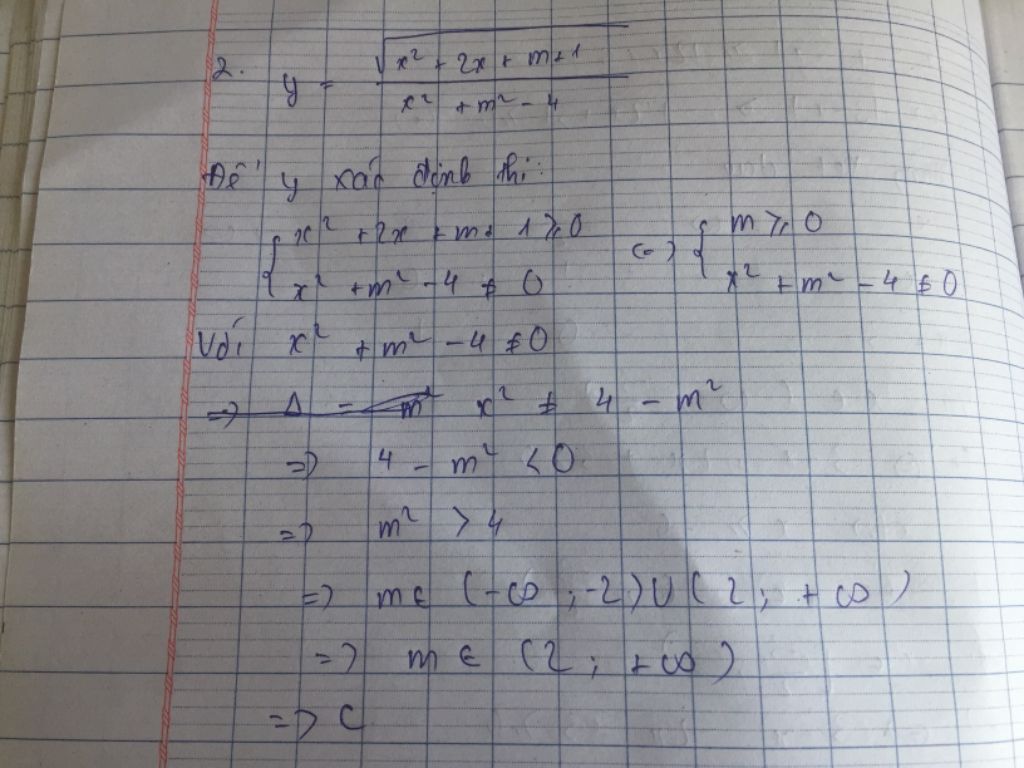 2. y = √(x² + 2x + m + 1) / (x² + m² - 4)
Để y xác định thì:
{ x² + 2x + m + 1 ≥ 0 (=) { m ≥ 0
x² + m² - 4 ≠ 0 x² + m² - 4 ≠ 0
Với x² + m² - 4 ≠ 0
x² ≠ 4 - m²
=> 4 - m² < 0
=> m² > 4
=> m ∈ (-∞; -2) ∪ (2; +∞)
=> m ∈ (2; +∞)
=> C